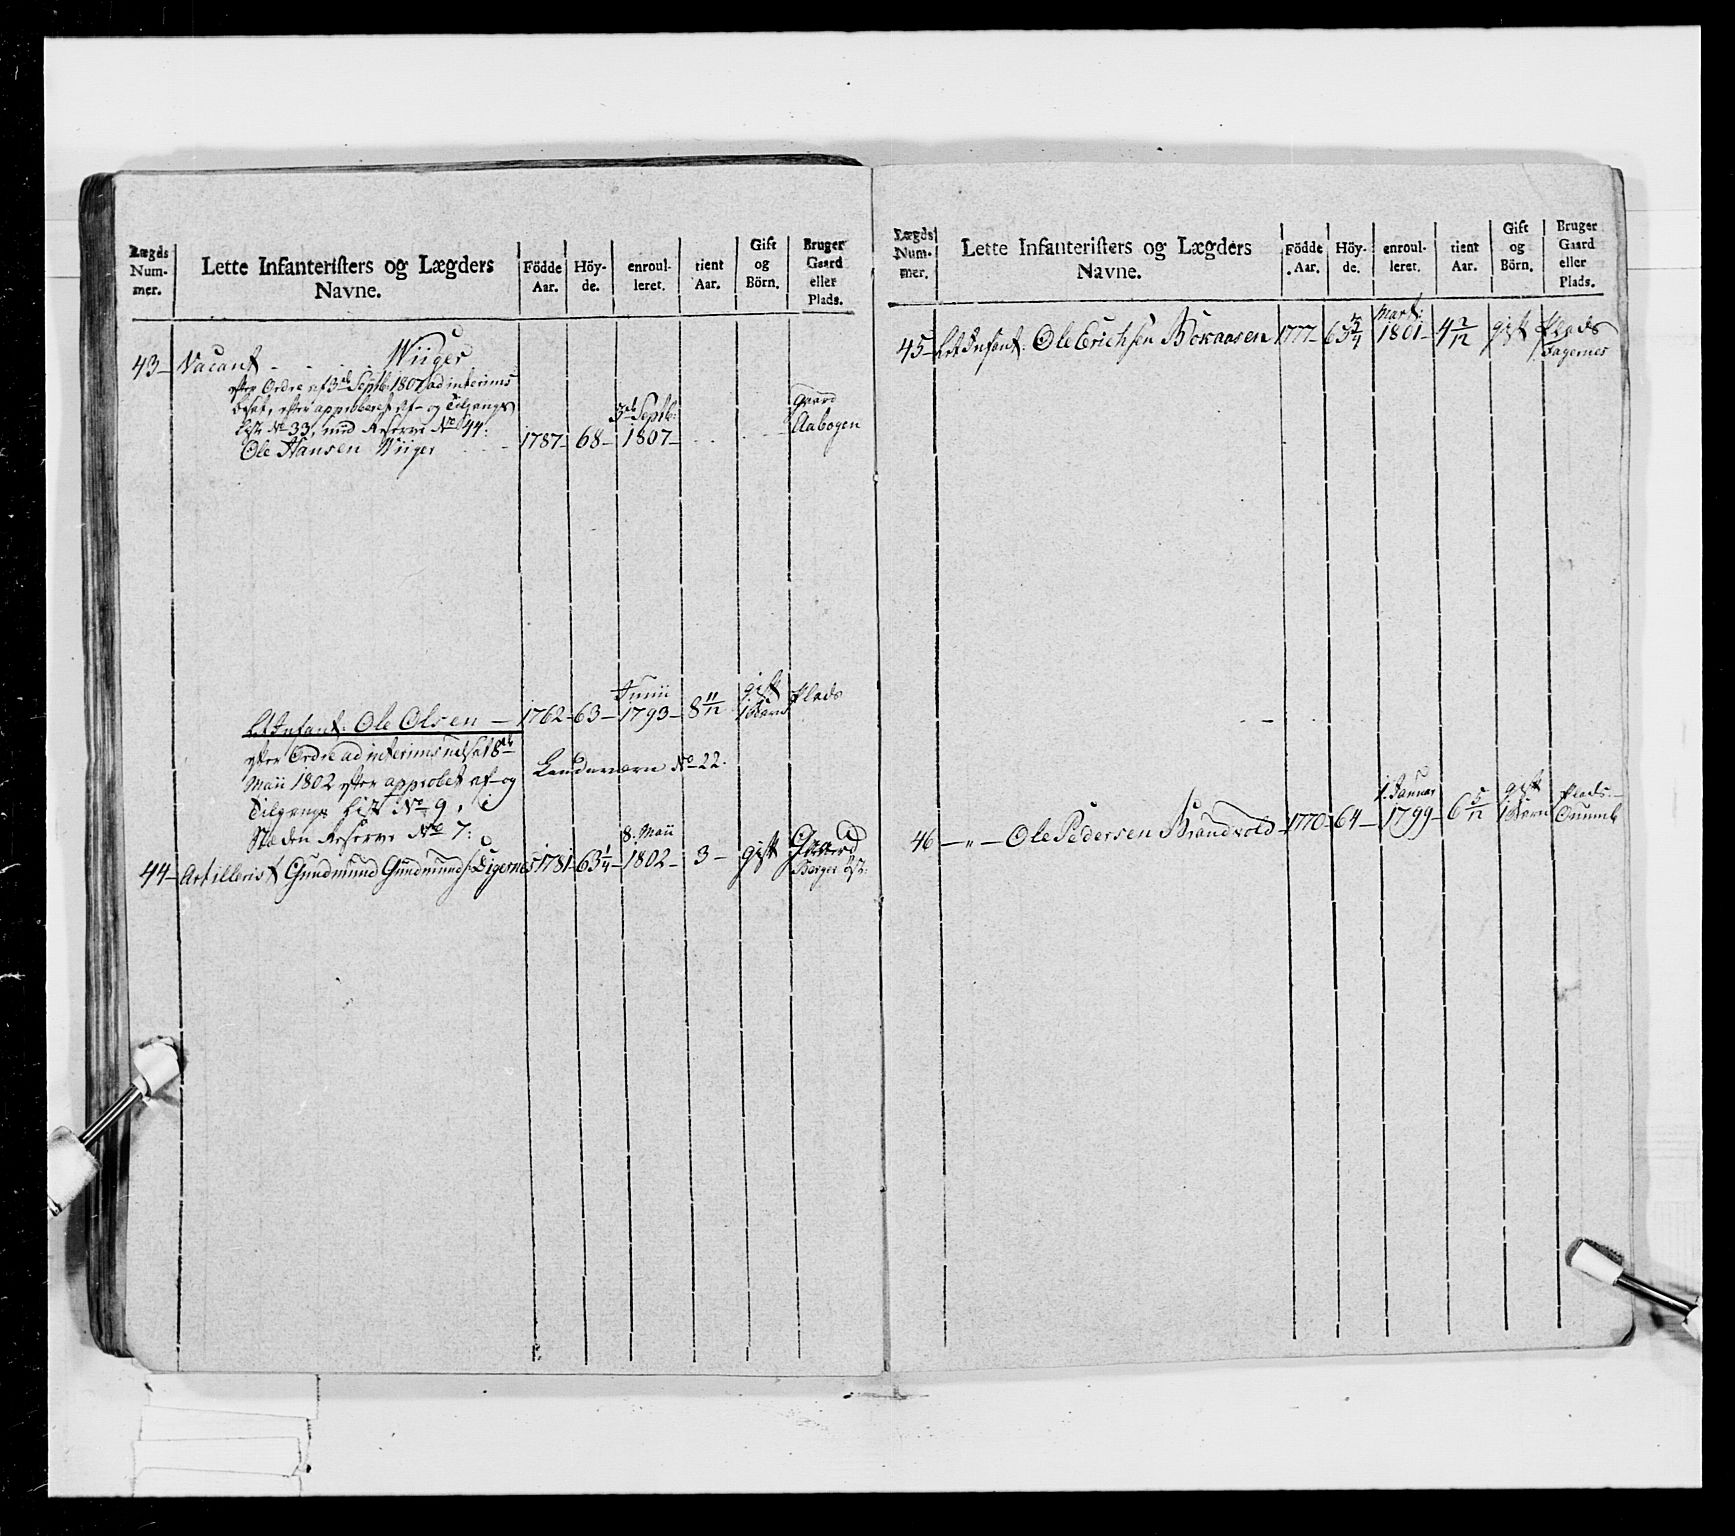 Lægds Num- mer.
Lette Infanteristers og Lægders Navne.
Födde Aar.
Höy- de.
enroul- leret.
tient Aar.
Gift og Börn.
Bruger Gaard eller Plads.
43 - Vacant - - - Wiiger
efter Ordre af 3de Septb: 1807 ad interims
besat, efter approberet Af- og Tilgangs
Liste No 33, med Reserve No 44:
Ole Hansen Wiiger - 1787 - 68 - 3de Septb: 1807 - Gaard Aabogen
Let Infant: Ole Olsen - 1762 - 63 - Junii 1793 - 8 11/12 gift 1 Barn Plads
efter Ordre ad interims udsat 8de
Maii 1802 efter approbet af- og
Tilgangs List No 9,
Landeværn No 22.
Reserve No 7:
44 - Artillerist Gundmund Gundmunds: Digernes 1781 - 63 1/4 - 8: Maii 1802 - 3 - gift Gaard
Lægds Num- mer.
Lette Infanteristers og Lægders Navne.
Födde Aar.
Höy- de.
enroul- leret.
tient Aar.
Gift og Börn.
Bruger Gaard eller Plads.
45 - Let Infant: Ole Erichsen 1777 - 63 3/4 Marti: 1801 - 4 2/12 gift Plads Fagernes
46 - " - Ole Pedersen Brandvold - 1770 - 64 - 1. Januar 1799 - 6 5/12 gift 1 Barn Plads